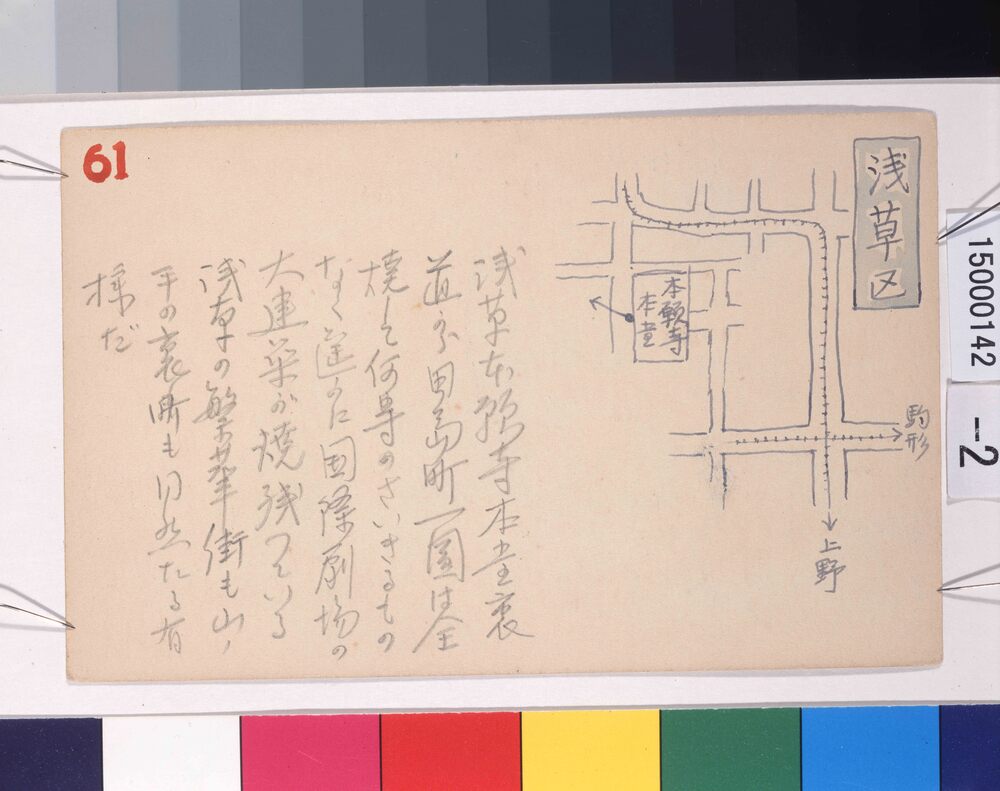 61
浅草区
本願寺
本堂
駒形
上野
浅草本願寺本堂裏
道から田島町一圓は全
焼して何等のさいぎるもの
なく遥かに国際劇場の
大建築が焼残つている
浅草の繁華街も山ノ
手の裏町も同然たる有
様だ
15000142
-2